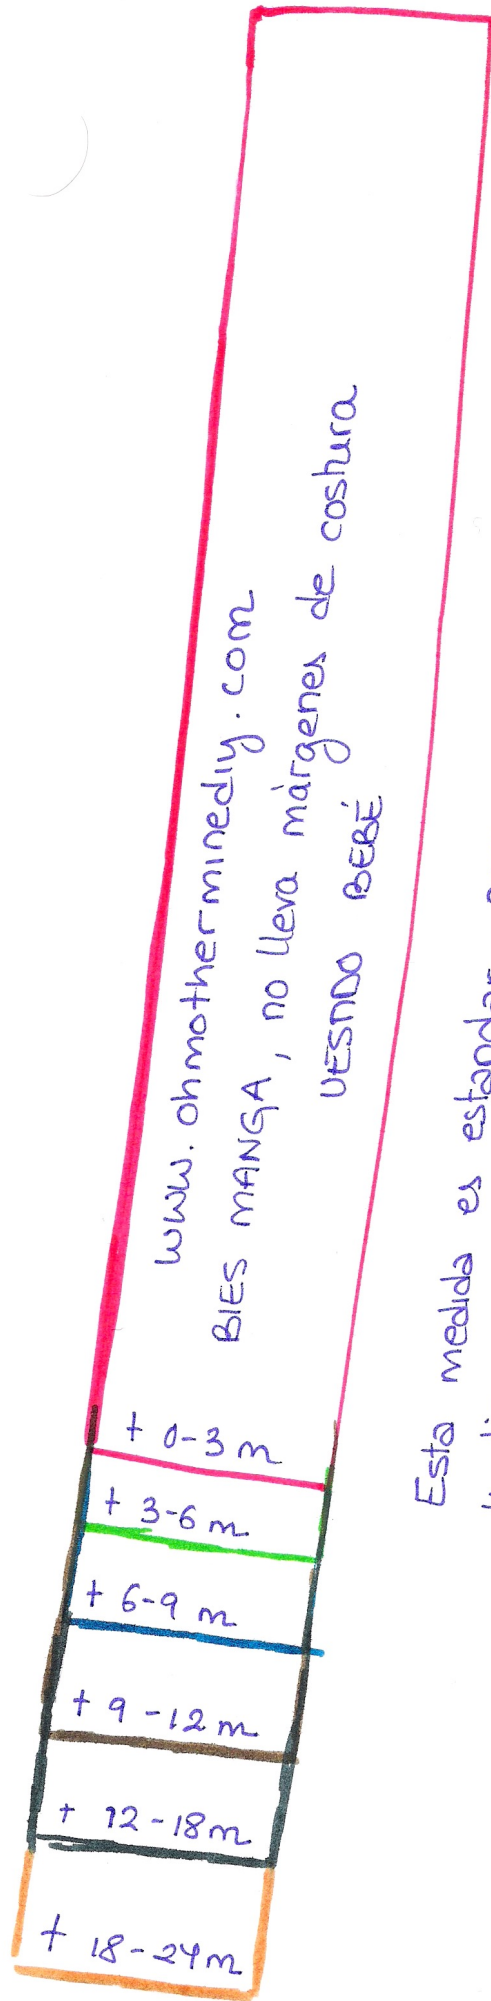 www.ohmotherminediy.com
BIES MANGA, no lleva márgenes de costura
VESTIDO BEBÉ
Esta medida es estandar
+ 0-3 m
+ 3-6 m
+ 6-9 m
+ 9-12 m
+ 12-18 m
+ 18-24 m